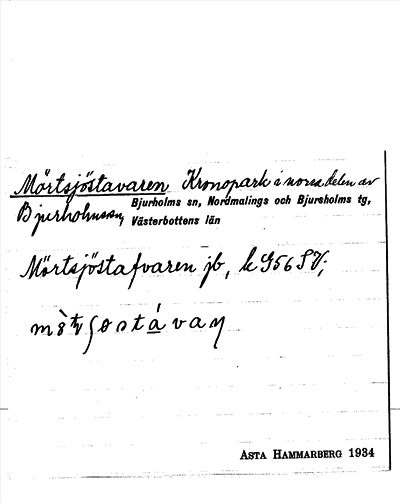 Mörtsjöstavaren Kronopark i norra delen av
Bjurholms sn, Bjurholms sn, Nordmalings och Bjursholms tg,
Västerbottens län
Mörtsjöstafvaren jb, k 956 SV;
Asta Hammarberg 1934